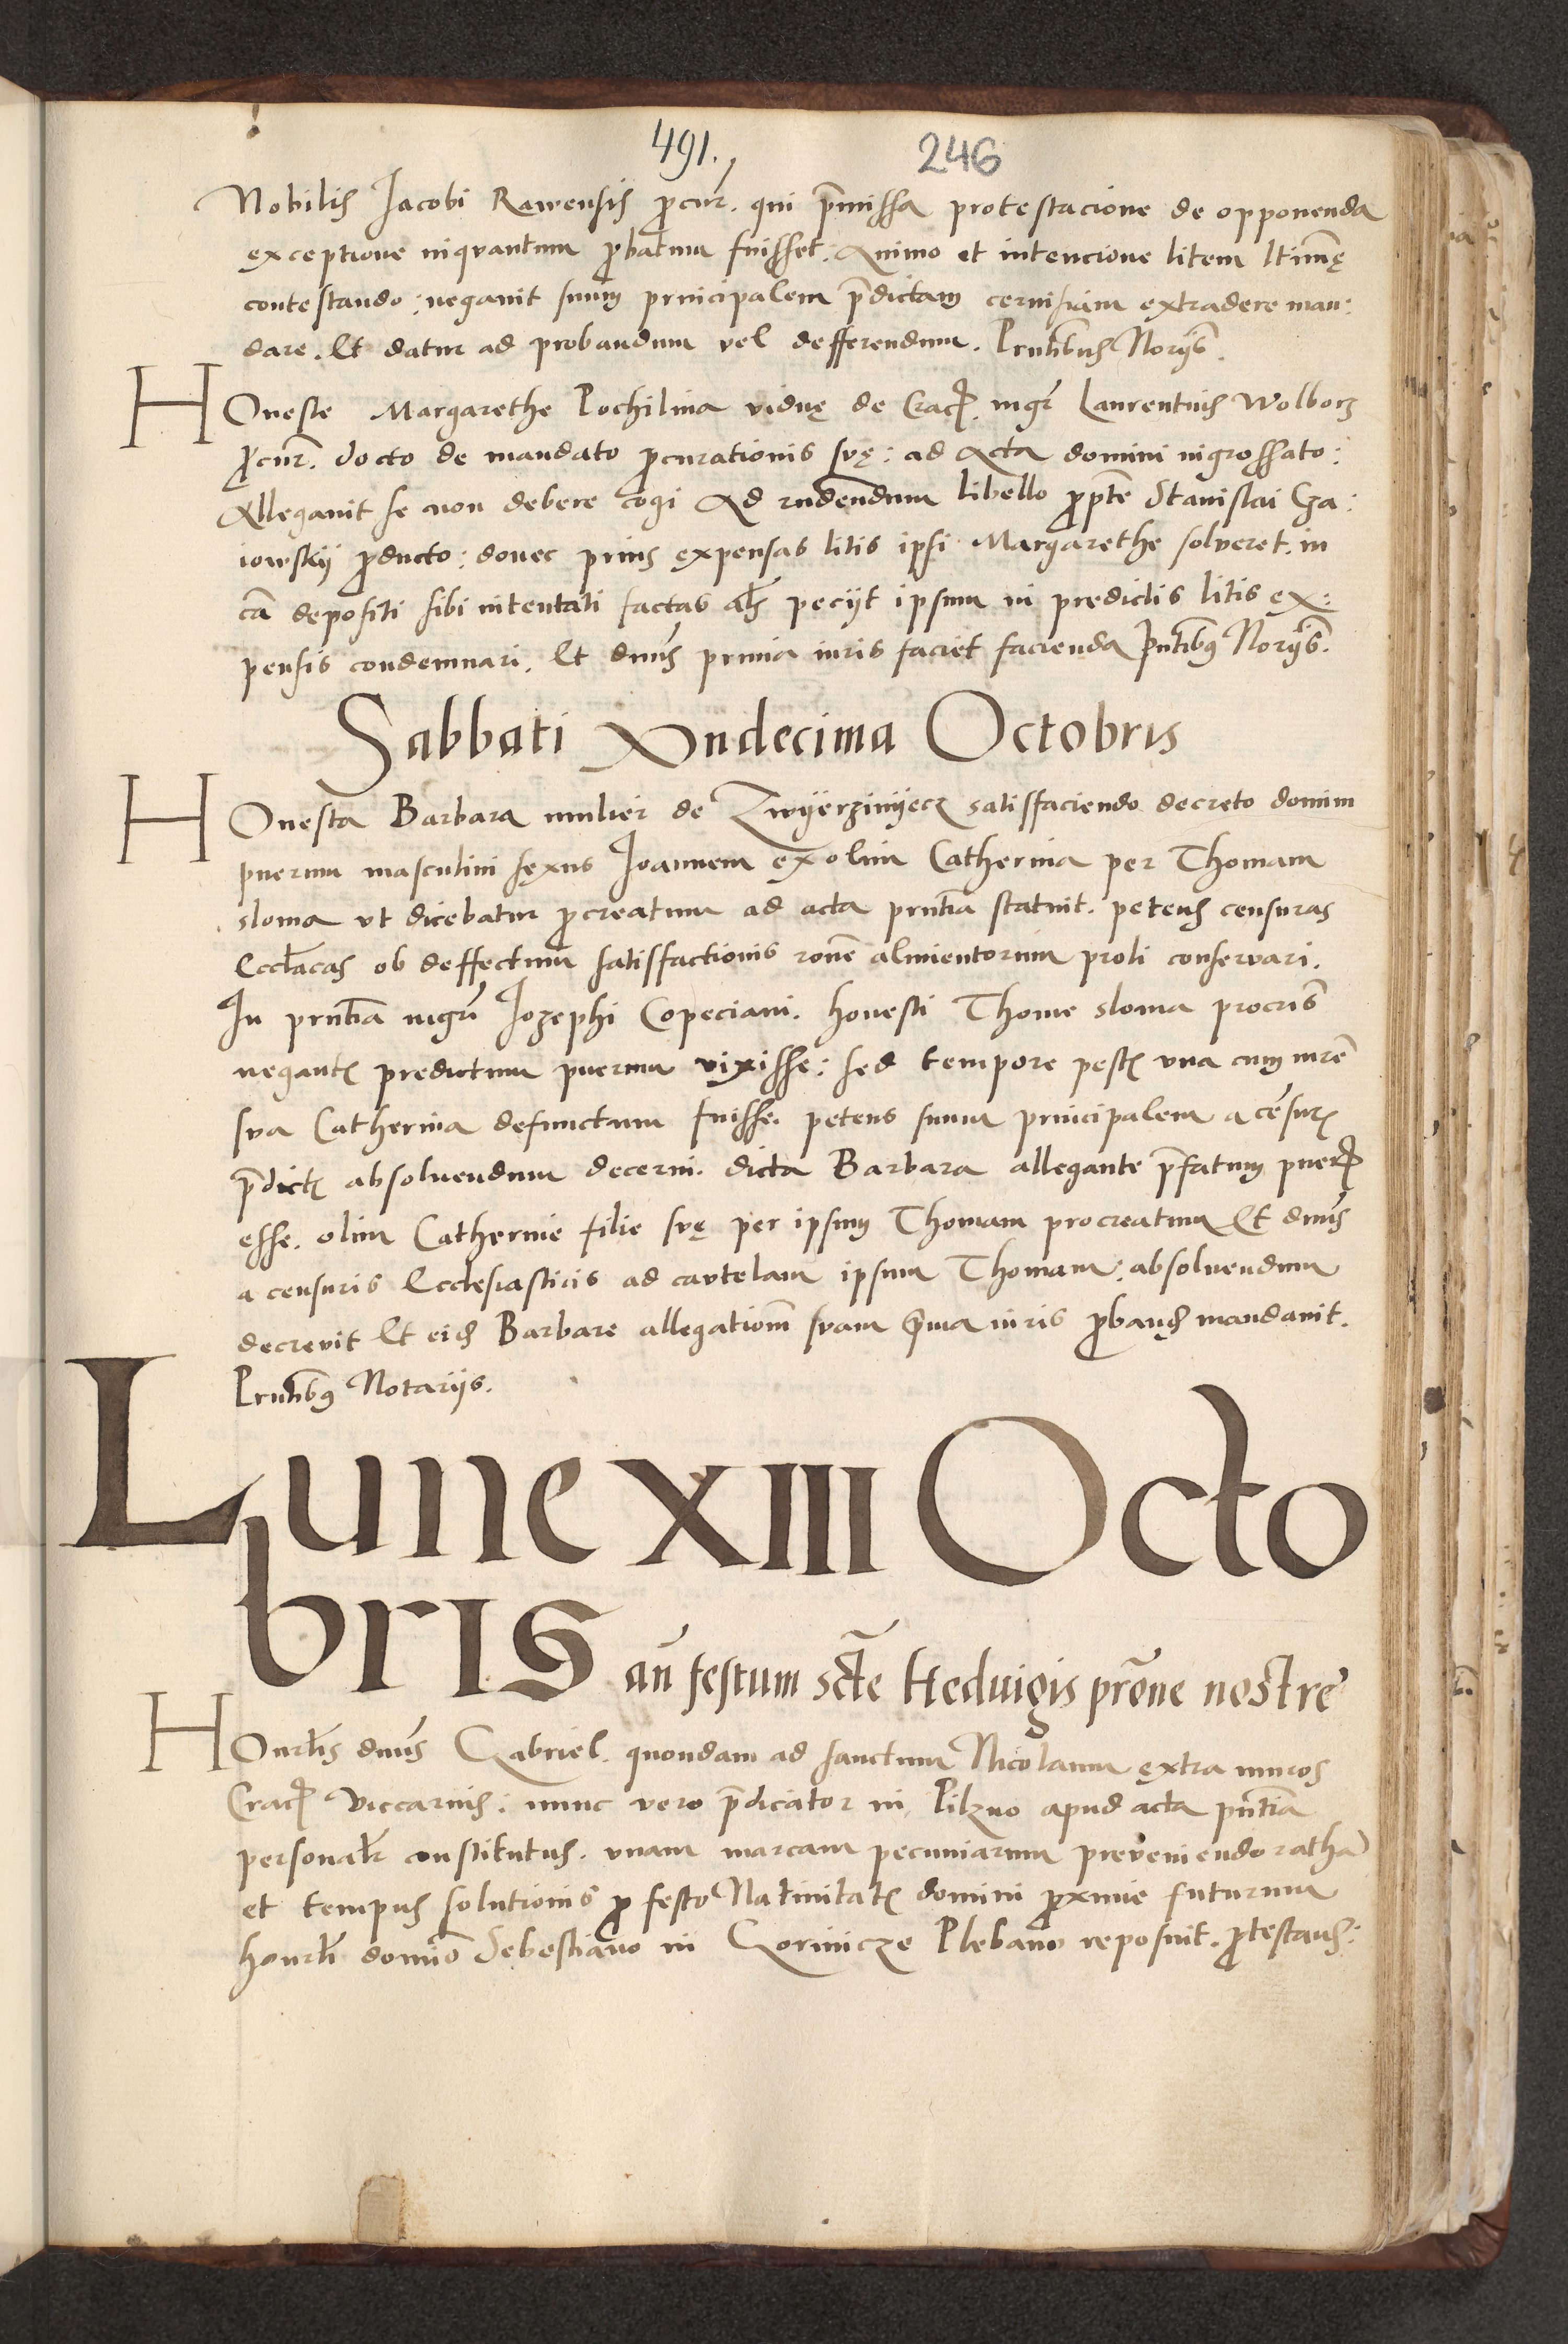 491.
246
Nobilis Jacobi Rawensis ꝓcur̄. qui p̄missa protestacione de opponenda
exceptione inqvantum ꝓbatum fuisset. Animo et intencione litem ltim̄ę
contestando; negauit suum principalem p̄dictam ceruisiam extradere man:
dare. Et datur ad probandum vel defferendum. Pn̄tibus Norijs̄.
HOneste Margarethe Pochilina viduę de Crac̄. mgr̄ Laurentius Wolborz
ꝓcur̄. docto de mandato ꝓcurationis svę: ad Acta domini ingrossato:
Allegauit se non debere cogi Ad rn̄dendum libello ꝓ pte Stanislai Cza:
iowskij ꝓducto: donec prius expensas litis ipsi Margarethe solveret. in
cā depositi sibi intentati factas al̄s peciit ipsum in predictis litis ex:
pensis condemnari. Et dn̄us primia iuris faciet facienda Pn̄tibꝰ Norijs̄.
Sabbati Vndecima Octobris
HOnesta Barbara mulier de Zwyerzinyecz satisfaciendo decreto domini
puerum masculini sexus Joannem ex olim Catherina per Thomam
sloma vt dicebatur ꝓcreatum ad acta prn̄tia statuit. petens censuras
Eccl̄acas ob deffectum satisfactionis rōne alimentorum proli conservari.
In prn̄tia mgr̄i Jozephi Copeciani. honesti Thome sloma procris̄
negantꝭ predictum puerum vixisse: sed tempore pestꝭ vna cum mr̄e
sva Catherina defunctum fuisse. petens suum principalem a cēsurꝭ
p̄dictꝭ absoluendum decerni. dicta Barbara allegante p̄fatum pueꝝ
esse. olim Catherine filie svę per ipsum Thomam procreatum Et dn̄us
a censuris Ecclesiasticis ad cavtelam ipsum Thomam: absoluendum
decrevit Et eid Barbare allegationem̄ svam p̄ma iuris ꝓband mandauit.
Prn̄tibꝰ Notarijs.
Lune XIII Octo
bris an̄ festum sc̄te Heduigis prōne nostre
HOnrl̄is dn̄us Gabriel. quondam ad sanctum Nicolaum extra muros
Crac̄ viccarius: nunc vero p̄dicator in Pilzno apud acta pn̄tia
personalr̄ constitutus. vnam marcam pecuniarum preveniendo ratha
et tempus solutionis ꝓ festo Natiuitatꝭ domini ꝓxime futurum
honrl̄i domīo Sebestiano in Gorinicze Plebano reposuit. ꝓtestans: